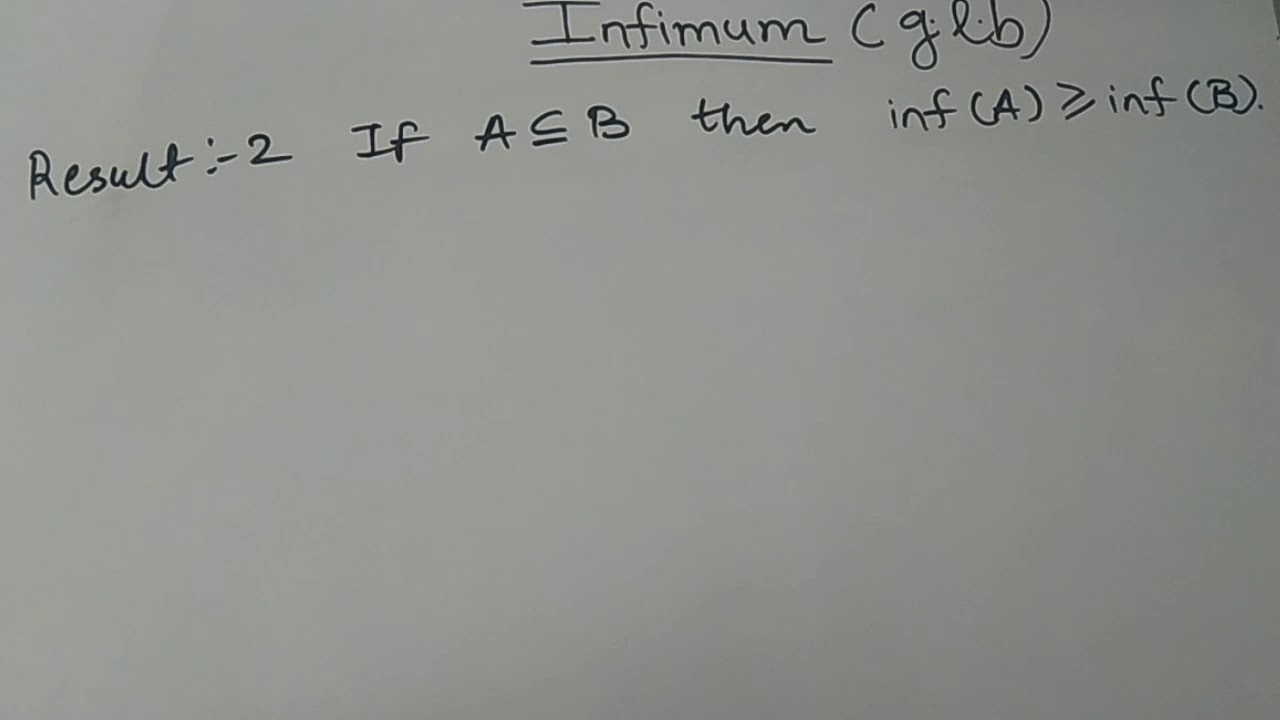 Infimum (g.l.b)
Result:-2 If A ⊆ B then inf(A) ⩾ inf(B).